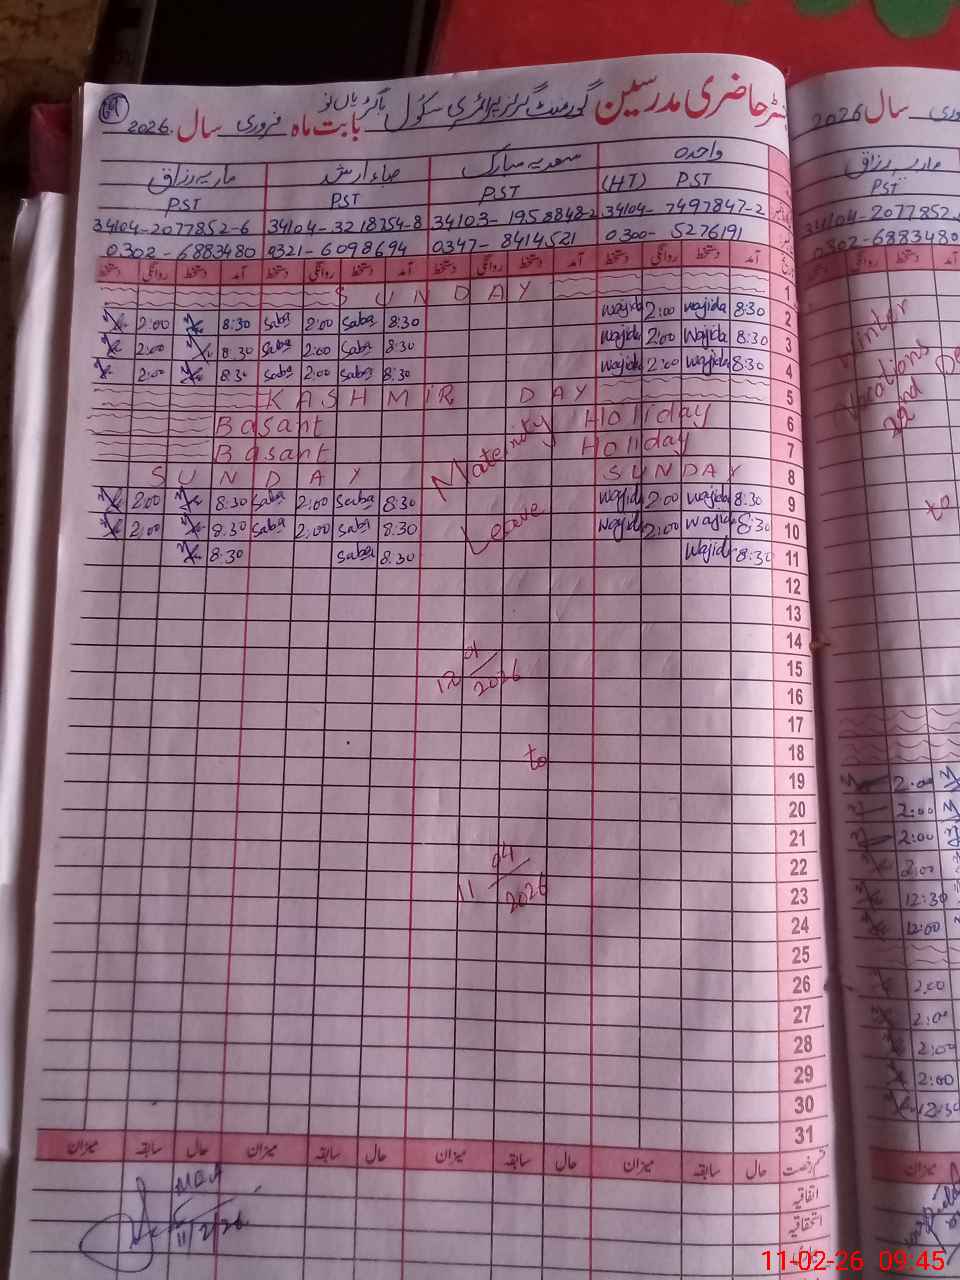 رجسٹر حاضری مدرسین گورنمنٹ گرلز پرائمری سکول باگڑیاں نو بابت ماہ فروری سال 2026
واجدہ سعدیہ مبارک صباء ارشد ماریہ رزاق
PST (HT) PST PST PST
34104-7497847-2 34103-1958848-2 34104-3218754-8 34104-2077852-6
0300-5276191 0347-8414521 0321-6098694 0302-6883480
آمد دستخط روانگی دستخط آمد دستخط روانگی دستخط آمد دستخط روانگی دستخط آمد دستخط روانگی دستخط
1 SUNDAY
2 8:30 wajida 2:00 wajida 8:30 Saba 2:00 Saba 8:30 2:00
3 8:30 wajida 2:00 wajida 8:30 Saba 2:00 Saba 8:30 2:00
4 8:30 wajida 2:00 wajida 8:30 Saba 2:00 Saba 8:30 2:00
5 KASHMIR DAY
6 Basant Holiday
7 Basant Holiday
8 SUNDAY SUNDAY
9 8:30 wajida 2:00 wajida 8:30 Saba 2:00 Saba 8:30 2:00
10 8:30 wajida 2:00 wajida 8:30 Saba 2:00 Saba 8:30 2:00
11 8:30 wajida 8:30 Saba 8:30
Maternity
Leave
12
13
14
15
16
17
18
19
20
21
22
23
24
25
26
27
28
29
30
31
12/01/2026
to
11/04/2026
قسم رخصت حال سابقہ میزان حال سابقہ میزان حال سابقہ میزان حال سابقہ میزان
اتفاقیہ
استحقاقیہ
MEA
11/2/26
سال 2026
ماریہ رزاق
PST
34104-2077852
0302-6883480
Winter
Vacations
22nd De
to
2:00
2:00
2:00
2:00
12:30
12:00
2:00
2:00
2:00
2:00
12:30
میزان
11-02-26 09:45